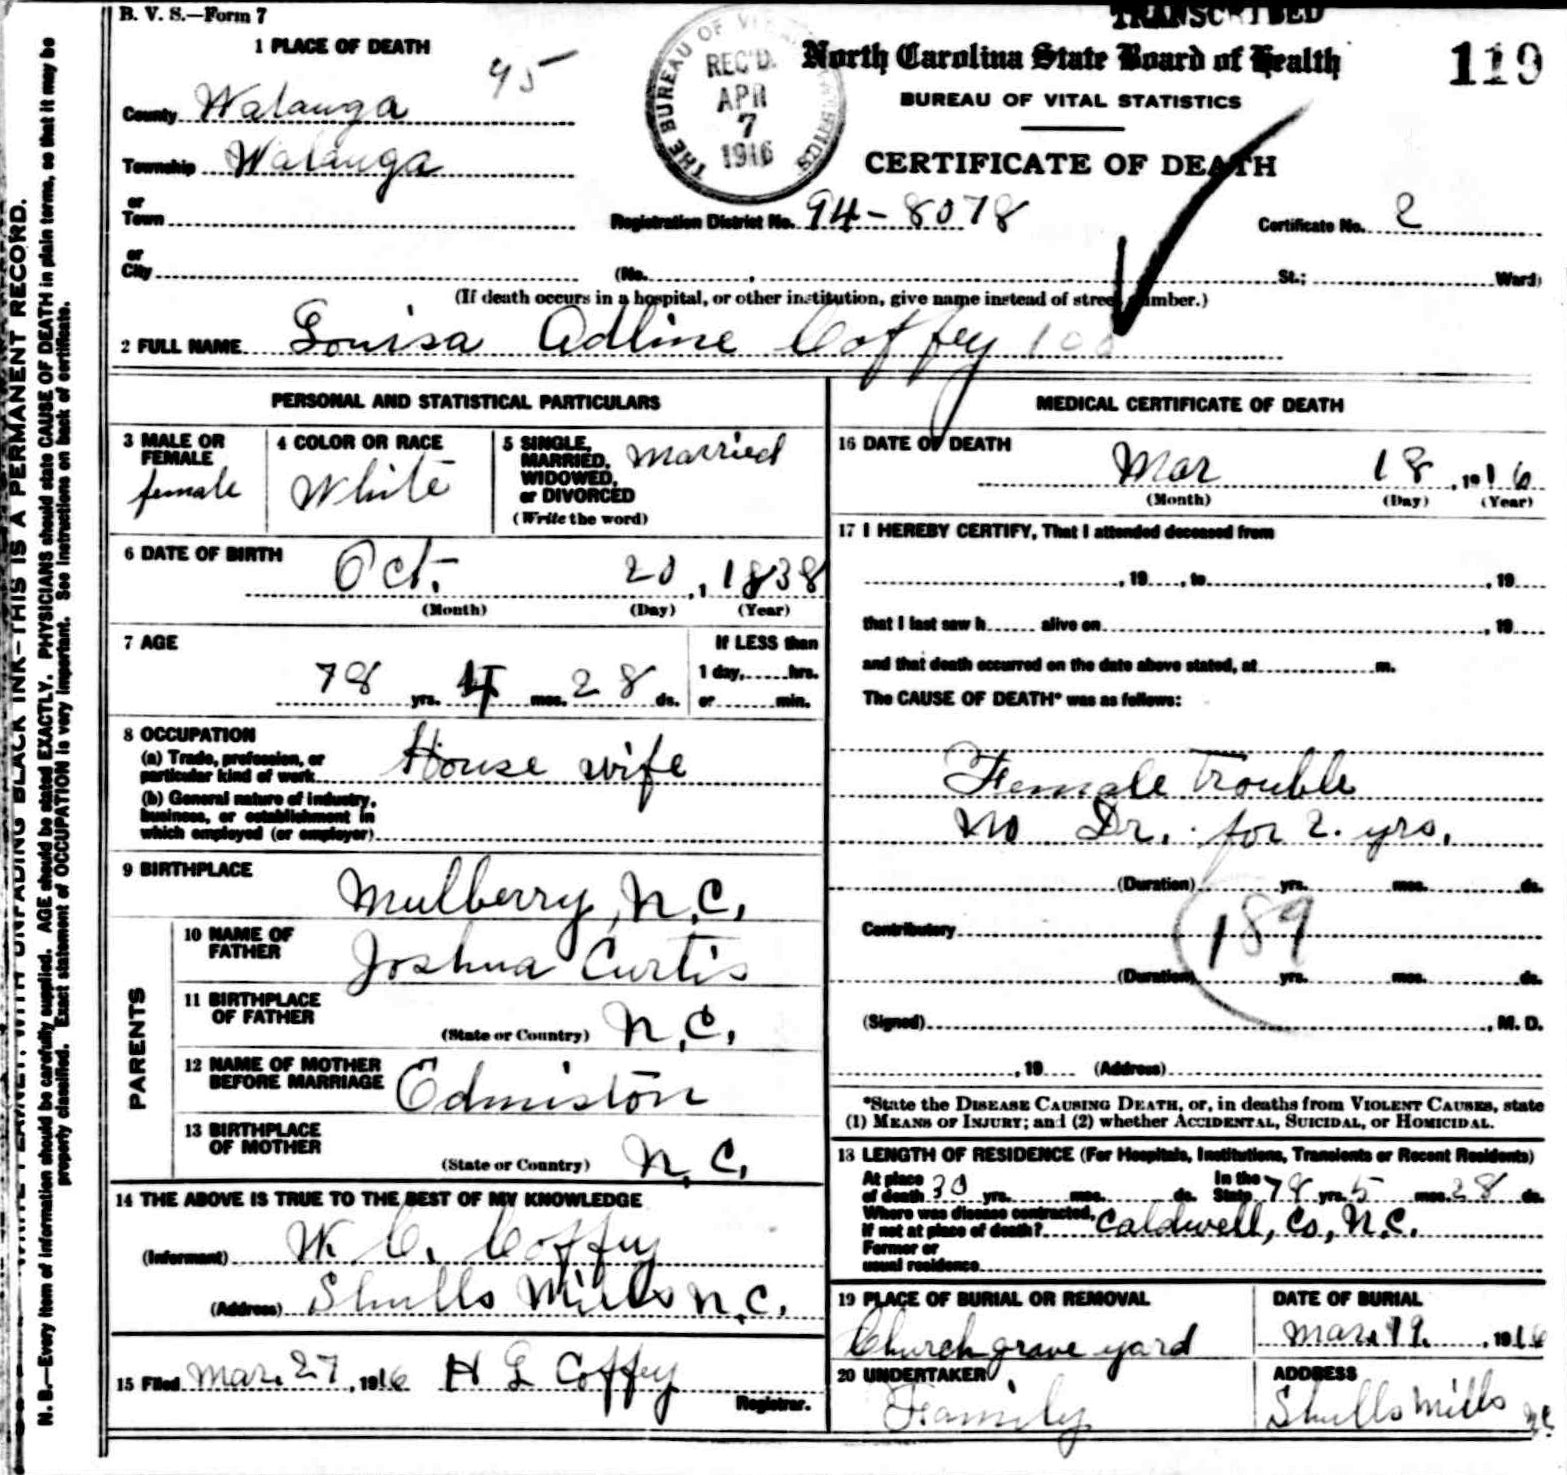 B. V. S.—Form 7
TRANSCRIBED
1 PLACE OF DEATH
95
THE BUREAU OF VITAL STATISTICS
REC'D.
APR
7
1916
North Carolina State Board of Health
119
BUREAU OF VITAL STATISTICS
CERTIFICATE OF DEATH
County Watauga
Township Watauga
or
Town
Registration District No. 94-8078
Certificate No. 2
or
City (No. , St.; Ward)
(If death occurs in a hospital, or other institution, give name instead of street number.)
2 FULL NAME Louisa Adline Coffey
PERSONAL AND STATISTICAL PARTICULARS
3 MALE OR FEMALE
female
4 COLOR OR RACE
White
5 SINGLE, MARRIED, WIDOWED, or DIVORCED
(Write the word)
married
6 DATE OF BIRTH
Oct. 20, 1838
(Month) (Day) (Year)
7 AGE
78 yrs. 4 mos. 28 ds.
If LESS than
1 day, hrs.
or min.
8 OCCUPATION
(a) Trade, profession, or
particular kind of work House wife
(b) General nature of industry,
business, or establishment in
which employed (or employer)
9 BIRTHPLACE
Mulberry, N.C.
PARENTS
10 NAME OF FATHER
Joshua Curtis
11 BIRTHPLACE OF FATHER
(State or Country) N.C.
12 NAME OF MOTHER BEFORE MARRIAGE
Edmiston
13 BIRTHPLACE OF MOTHER
(State or Country) N.C.
14 THE ABOVE IS TRUE TO THE BEST OF MY KNOWLEDGE
(Informant) W. C. Coffey
(Address) Shulls Mills N.C.
15 Filed Mar. 27, 1916 H L Coffey
Registrar.
MEDICAL CERTIFICATE OF DEATH
16 DATE OF DEATH
Mar 18, 1916
(Month) (Day) (Year)
17 I HEREBY CERTIFY, That I attended deceased from
, 19 , to , 19
that I last saw h alive on , 19
and that death occurred on the date above stated, at m.
The CAUSE OF DEATH* was as follows:
Female trouble
No Dr. for 2. yrs.
(Duration) yrs. mos. ds.
Contributory
189
(Duration) yrs. mos. ds.
(Signed) , M. D.
, 19 (Address)
*State the DISEASE CAUSING DEATH, or, in deaths from VIOLENT CAUSES, state
(1) MEANS OF INJURY; and (2) whether ACCIDENTAL, SUICIDAL, or HOMICIDAL.
18 LENGTH OF RESIDENCE (For Hospitals, Institutions, Transients or Recent Residents)
At place
of death 30 yrs. mos. ds.
In the
State 78 yrs. 5 mos. 28 ds.
Where was disease contracted,
if not at place of death? Caldwell, Co, N.C.
Former or
usual residence
19 PLACE OF BURIAL OR REMOVAL
Church grave yard
DATE OF BURIAL
Mar. 19. , 1916
20 UNDERTAKER
Family
ADDRESS
Shulls Mills NC
N. B.—Every item of information should be carefully supplied. AGE should be stated EXACTLY. PHYSICIANS should state CAUSE OF DEATH in plain terms, so that it may be
properly classified. Exact statement of OCCUPATION is very important. See instructions on back of certificate.
WRITE PLAINLY, WITH UNFADING BLACK INK—THIS IS A PERMANENT RECORD.